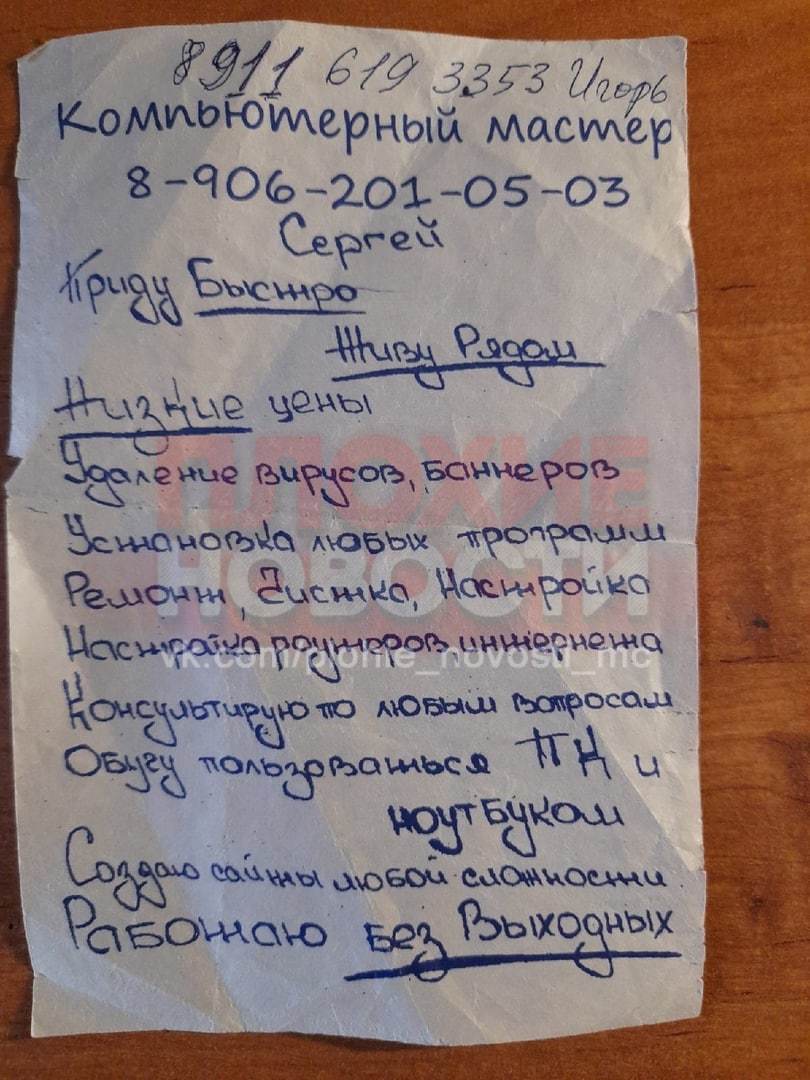 8911 619 3353 Игорь
Компьютерный мастер
8-906-201-05-03
Сергей
Приду Быстро
Живу Рядом
Низкие цены
Удаление вирусов, баннеров
ПЛОХИЕ
Установка любых программ
НОВОСТИ
Ремонт, Чистка, Настройка
Настройка роутеров, интернета
vk.com/plohie_novosti_mc
Консультирую по любым вопросам
Обучу пользоваться ПК и
ноутбуком
Создаю сайты любой сложности
Работаю без Выходных